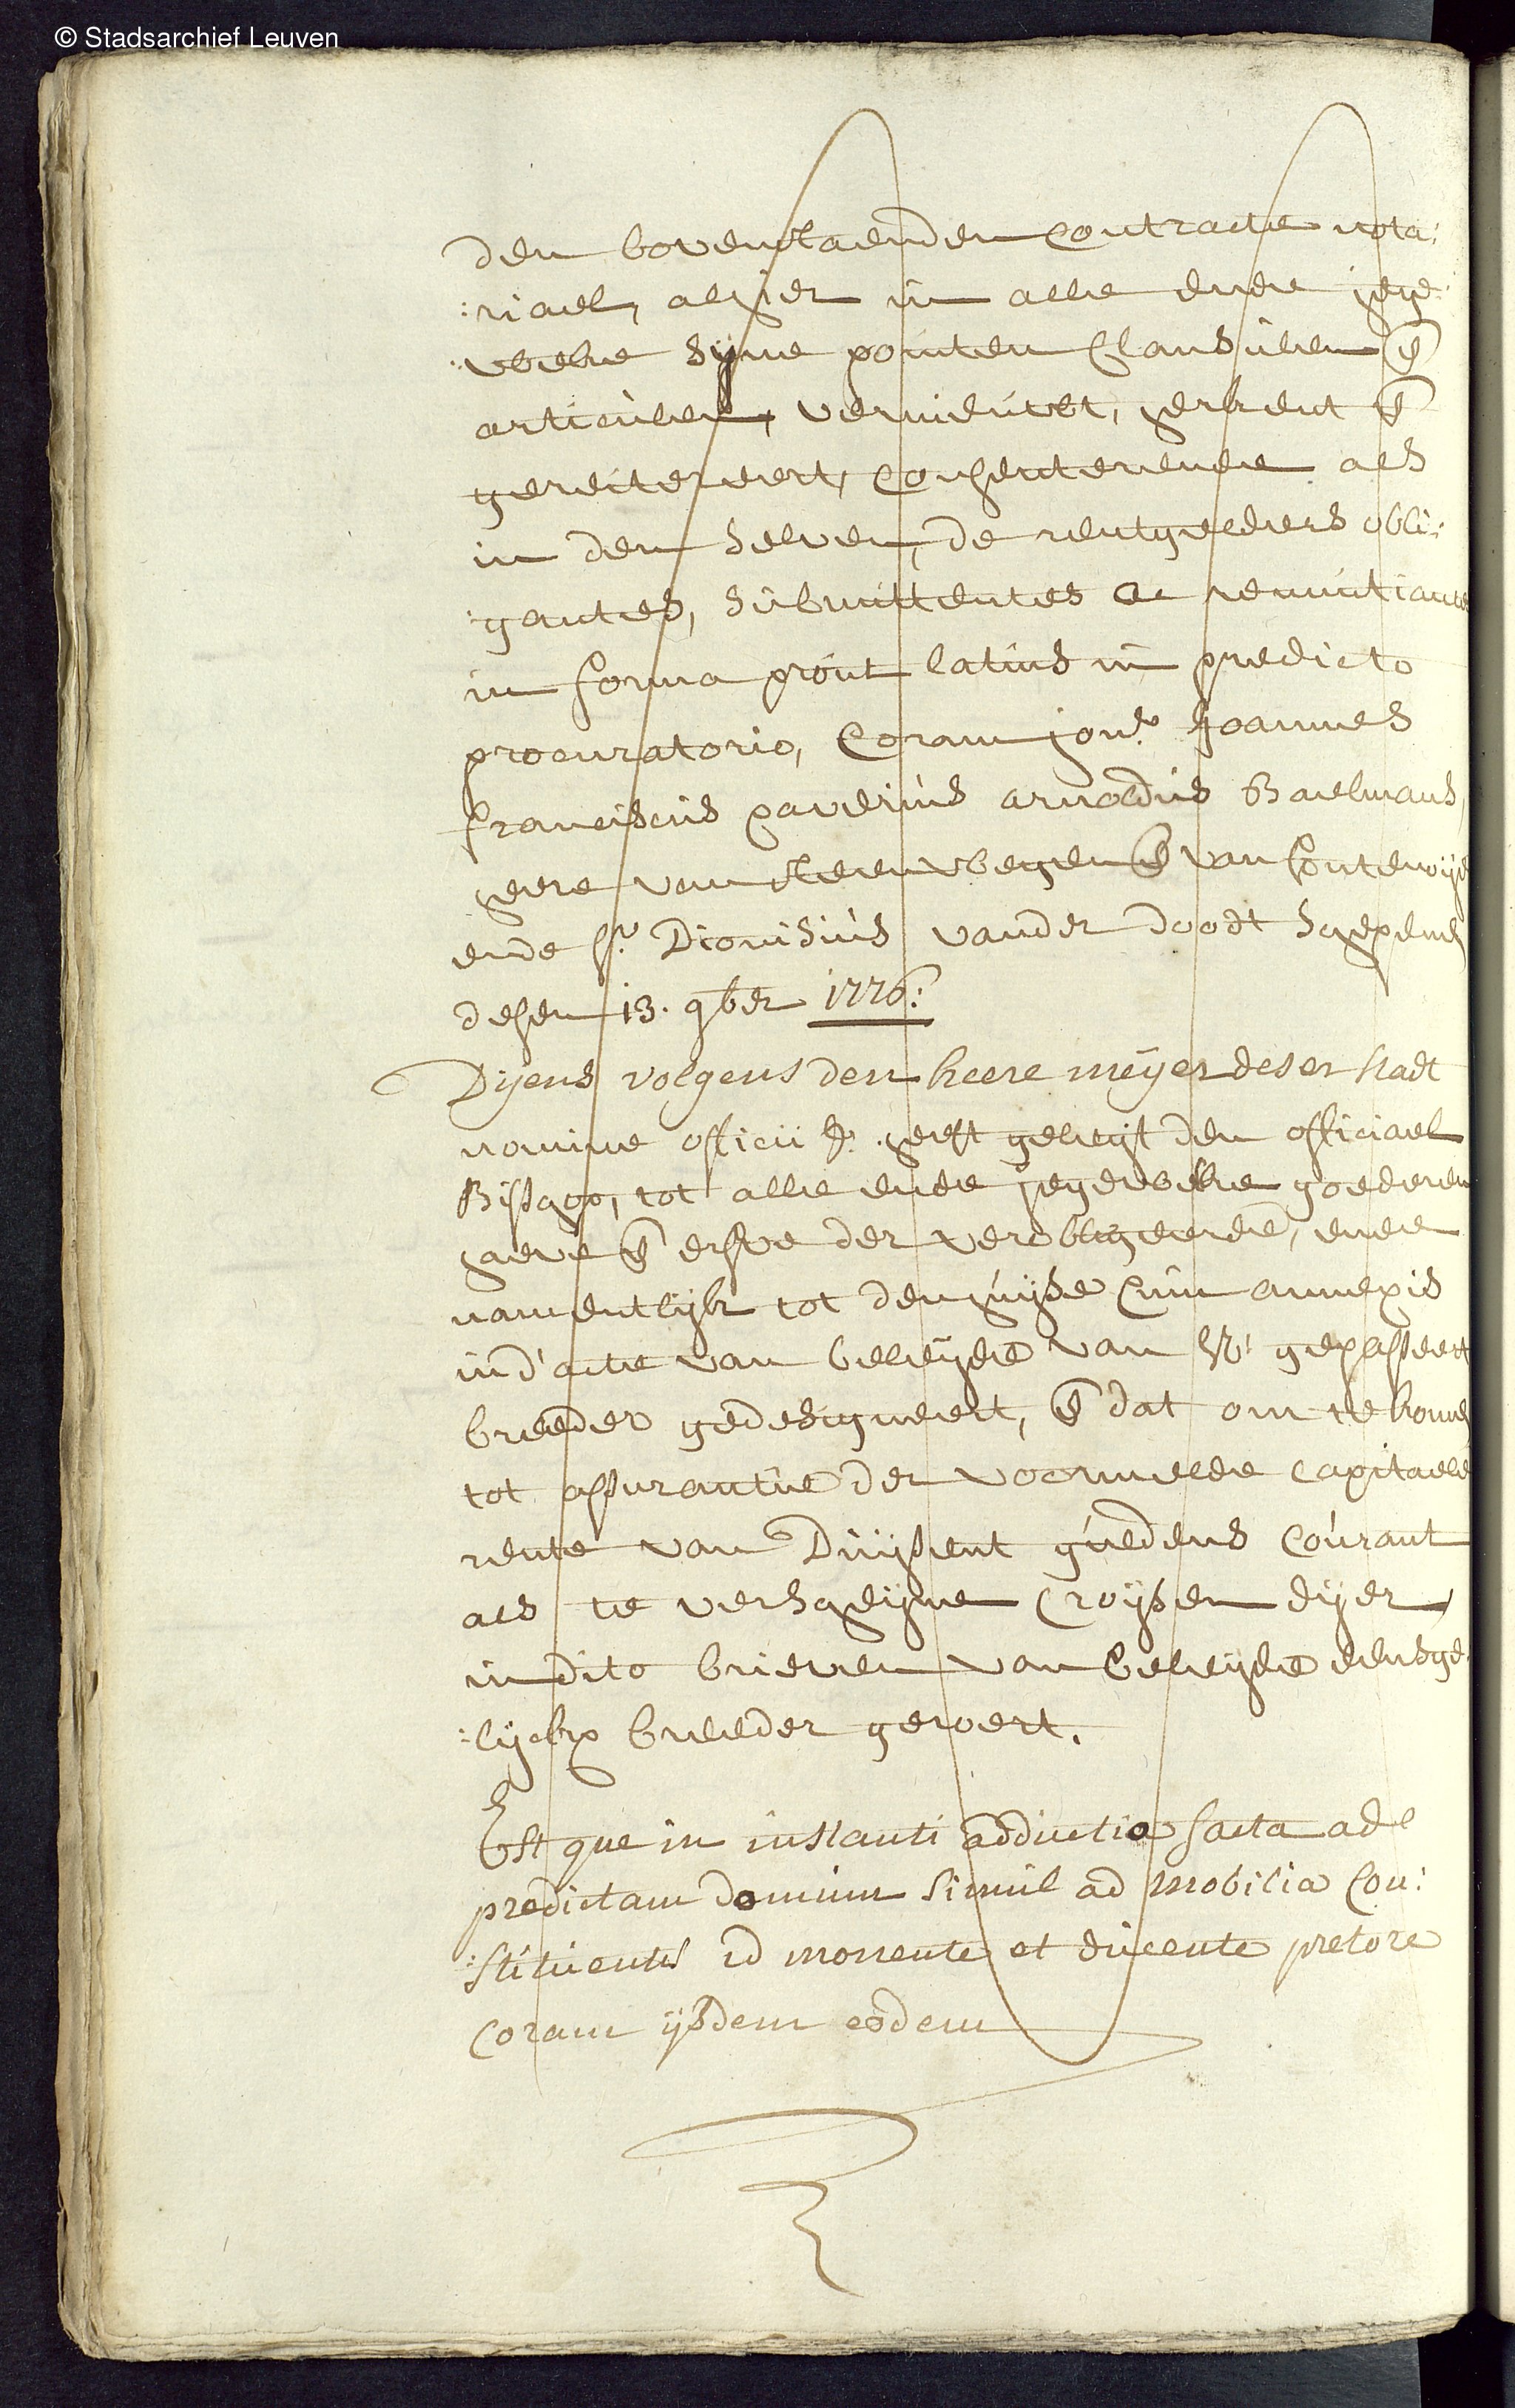 © Stadsarchief Leuven
den bovenstaenden contracte nota:
:riael, alhier in alle ende iege
:welcke sijne pointen clausulen e
articulen, vernieuwt, herkent e
gereitereert, consenterende als
in den selven, de rentgelders obli:
:gantes, submittentes ac renuntiantes
in forma prout latius in predicto
procuratorio, coram jonr Joannes
franciscus xaverius arnoldus Baelmans,
heere van steenwegen e van fontenoije
ende sr. Dionisius vander doodt schepenen
desen 13. 9ber 1776:
Dijens volgens den heere meijer deser stadt
nomine officii heeft geleijt den officiael
Bissago, tot alle ende iegewelcke goederen
haeve e erffve der verobligeerde, ende
namentlijck tot den huijse cum annexis
in d'acte van beleijde van gepasseert
breeder gedesigneert, e dat om te komen
tot assurantie der voormelde capitaele
rente van Duijsent guldens courant
als te verscheijne croijsen dijer
in dito brieven van beleijde eensge
:lijckx breeder geroert.
Est que in instanti adductio facta ad
predictam domum simul ad mobilia con:
:stituentis id monente et ducente pretore
coram ijsdem eodem